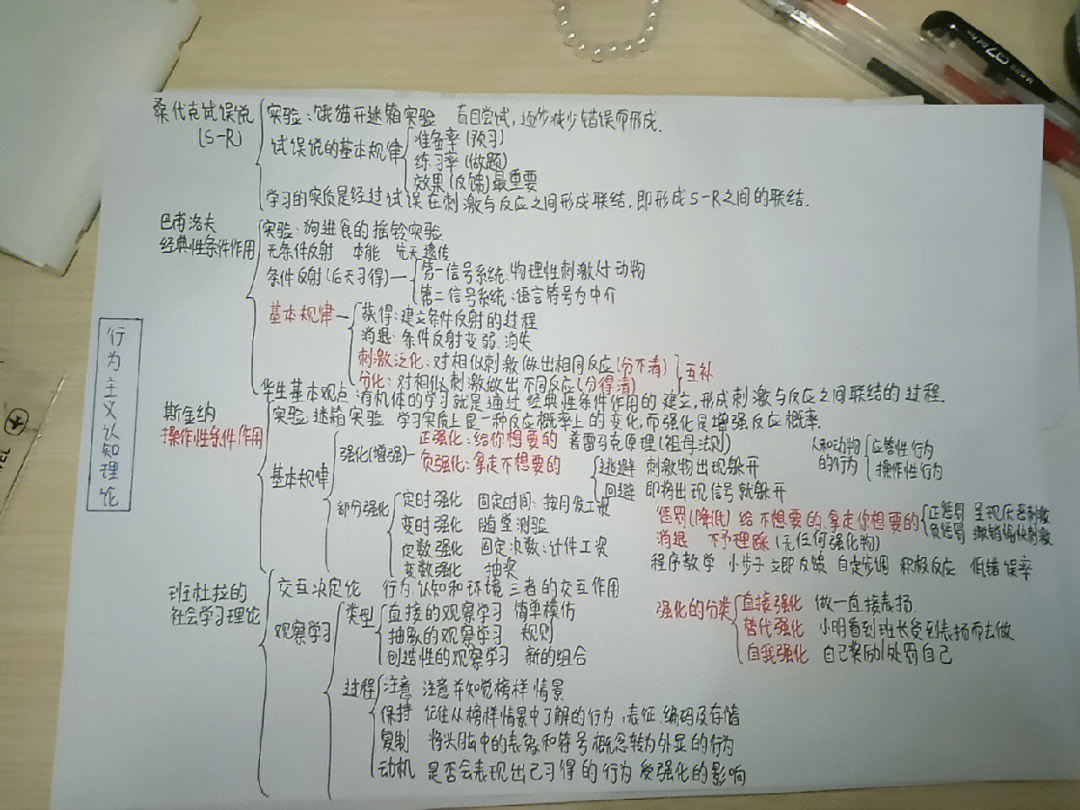 行为主义认知理论
桑代克试误说
(S-R)
实验:饿猫开迷箱实验 盲目尝试,逐步减少错误而形成.
试误说的基本规律
准备率(预习)
练习率(做题)
效果(反馈)最重要
学习的实质是经过试误在刺激与反应之间形成联结,即形成S-R之间的联结.
巴甫洛夫
经典性条件作用
实验:狗进食的摇铃实验
无条件反射 本能 先天遗传
条件反射(后天习得)
第一信号系统:物理性刺激 人+动物
第二信号系统:语言符号为中介
基本规律
获得:建立条件反射的过程
消退:条件反射变弱.消失
刺激泛化:对相似刺激做出相同反应(分不清)
分化:对相似刺激做出不同反应(分得清)
互补
华生基本观点 有机体的学习就是通过经典性条件作用的建立,形成刺激与反应之间联结的过程.
斯金纳
操作性条件作用
实验:迷箱实验 学习实质上是一种反应概率上的变化,而强化是增强反应概率.
基本规律
强化(增强)
正强化:给你想要的 普雷马克原理(祖母法则)
负强化:拿走不想要的
逃避 刺激物出现躲开
回避 即将出现信号就躲开
人和动物
的行为
应答性行为
操作性行为
部分强化
定时强化 固定时间:按月发工资
变时强化 随堂测验
定数强化 固定次数:计件工资
变数强化 抽奖
惩罚(降低) 给不想要的,拿走你想要的
正惩罚 呈现厌恶刺激
负惩罚 撤销愉快刺激
消退 不予理睬(无任何强化物)
程序教学 小步子 立即反馈 自定步调 积极反应 低错误率
班杜拉的
社会学习理论
交互决定论 行为、认知和环境三者的交互作用
观察学习
类型
直接的观察学习 简单模仿
抽象的观察学习 规则
创造性的观察学习 新的组合
强化的分类
直接强化 做一直接表扬
替代强化 小明看到班长受到表扬而去做
自我强化 自己奖励/处罚自己
过程
注意 注意并知觉榜样情景
保持 记住从榜样情景中了解的行为,表征、编码及存储
复制 将头脑中的表象和符号概念转为外显的行为
动机 是否会表现出已习得的行为 受强化的影响